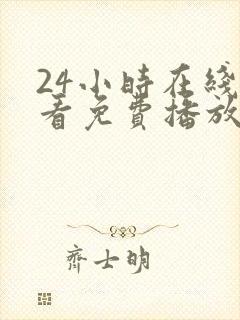 24小時在綫
看免費播放
齊士明